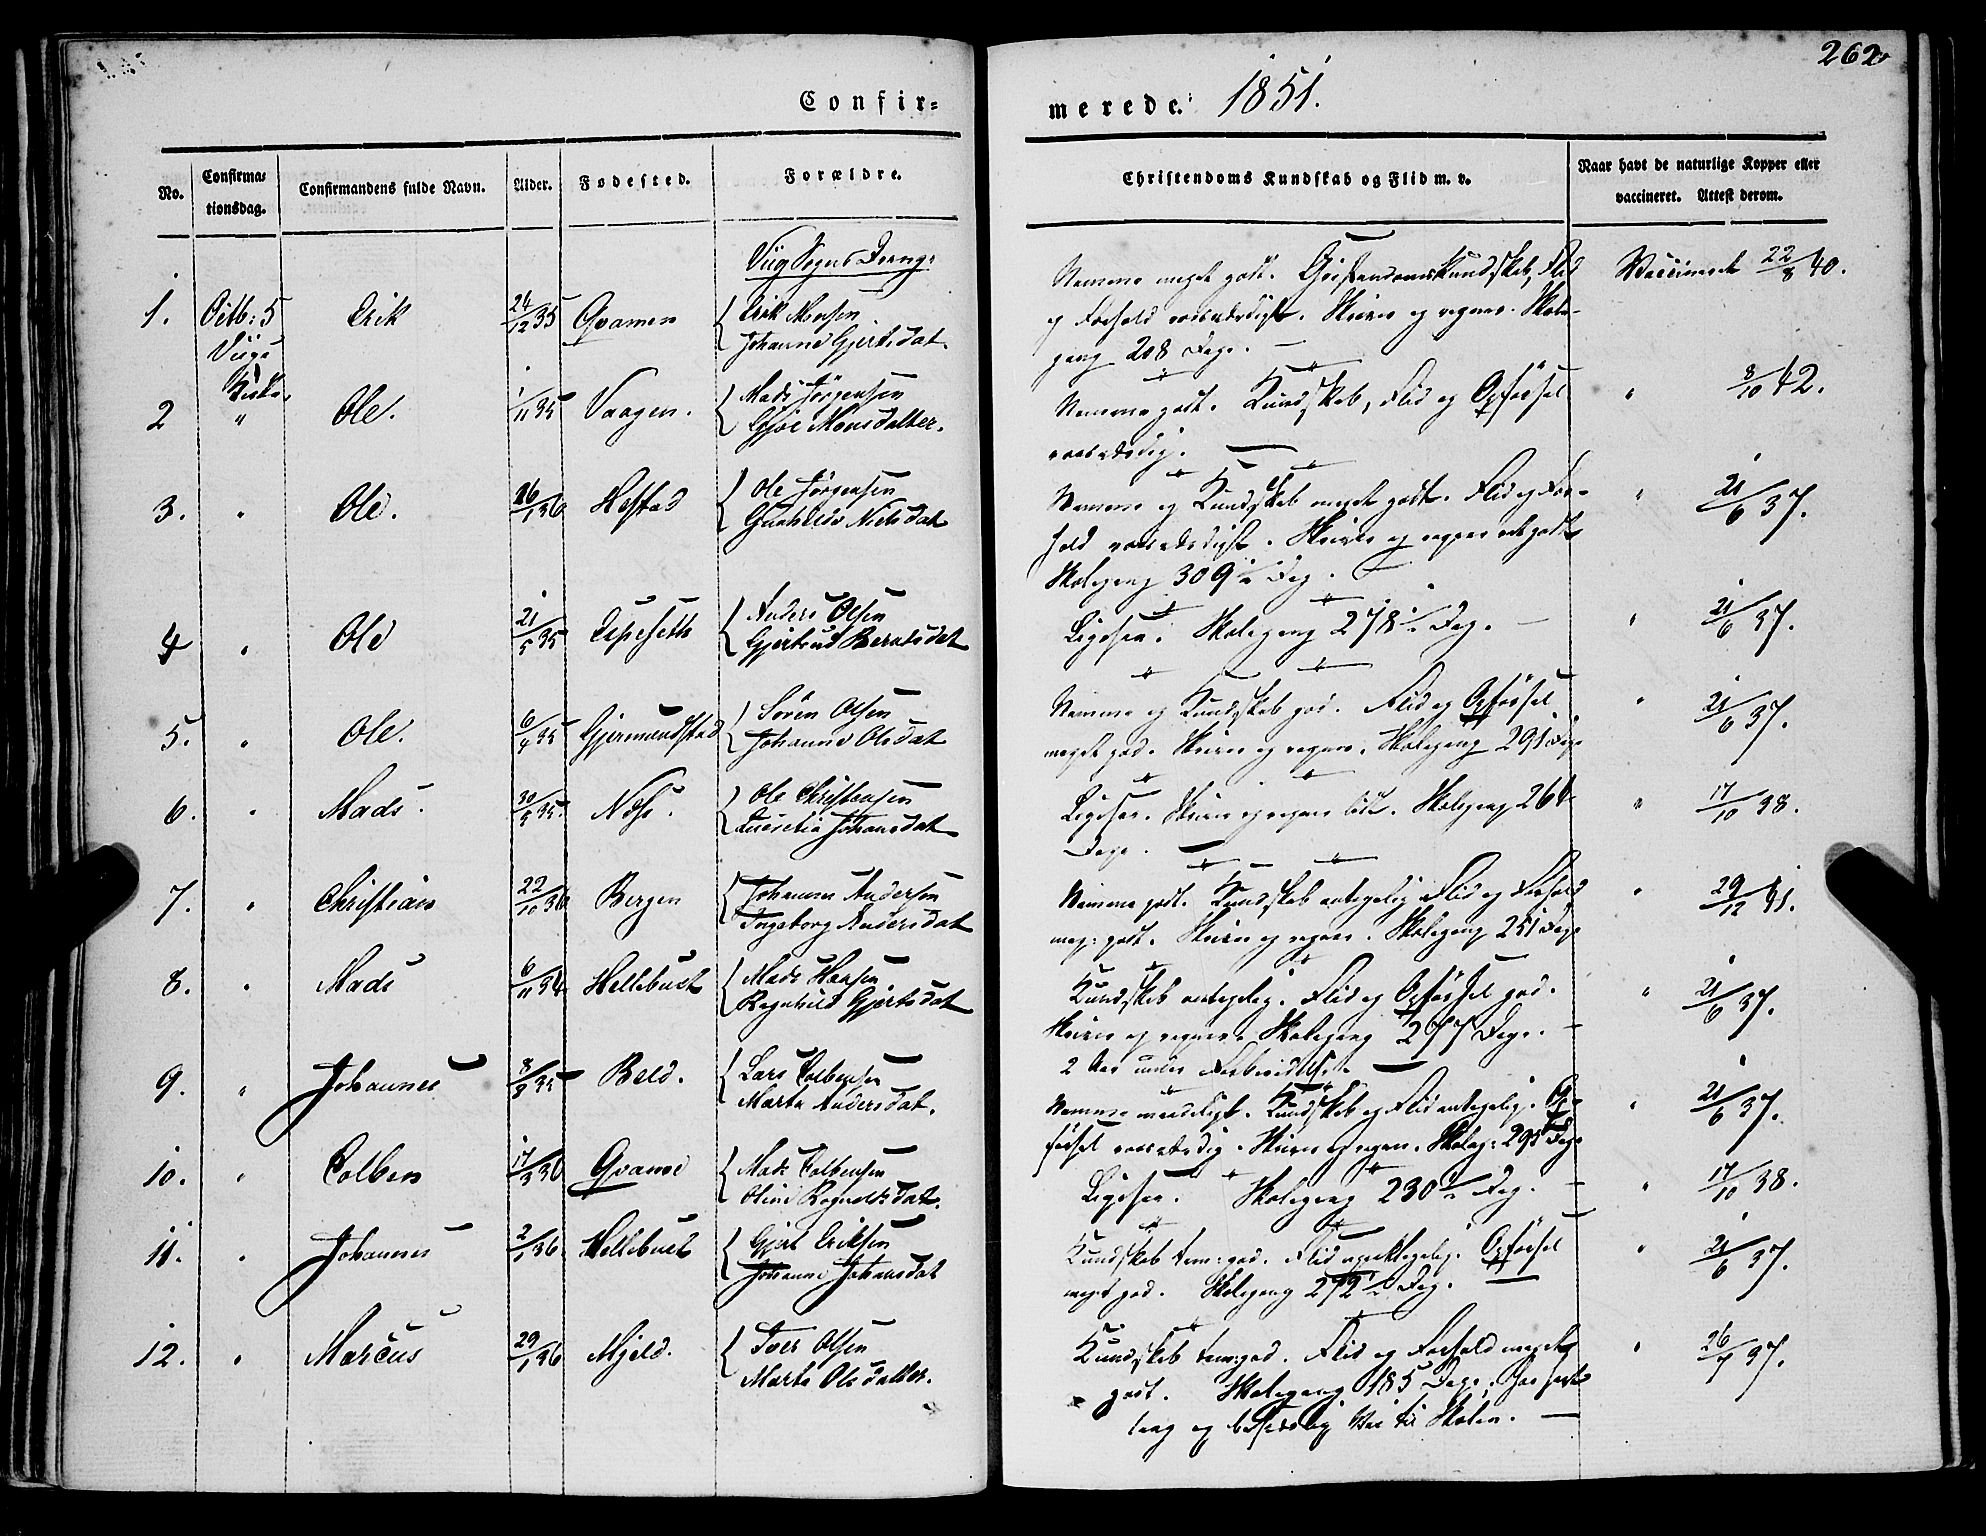 262
Confir-
merede. 1851.
No.
Confirma-
tionsdag.
Confirmandens fulde Navn.
Alder.
Fødested.
Forældre.
Christendoms Kundskab og Flid m. v.
Naar havt de naturlige Kopper eller
vaccineret. Attest derom.
1. Octb: 5 Erik 24/12 35 Qvamen Erik Monsen
Johanne Gjertsdat.
Nemme meget godt. Christendomskundskab, Flid
og Forhold roesværdigt. Skriver og regner. Skole-
gang 208 Dage.
Vaccineret 22/8 40.
2 " Ole. 1/11 35 Vaagen. Mads Jörgensen
Monsdatter.
Nemme godt. Kundskab, Flid og Opførsel
roesværdig.
" 8/10 42.
3. " Ole. 26/1 36 Hestad Ole Jörgensen
Gunhilde Nielsdat
Nemme og Kundskab meget godt. Flid og For-
hold roesværdigt. Skriver og regner
Skolegang 309 Dag.
" 21/6 37.
4 " Ole 21/5 35 Espeseth Anders Olsen
Gjertrud Berntsdat
Ligesaa. Skolegang 278 Dag.
" 21/6 37.
5. " Ole. 6/4 35 Gjermundstad Sören Olsen
Johanne Olsdat
Nemme og Kundskab god. Flid og Opførsel
meget god. Skriver og regner. Skolegang 291 Dage
" 21/6 37.
6. " Mads. 30/5 35. Næse. Ole Christensen
Lucretia Johansdat
Ligesaa. Skriver og regner lidt. Skolegang 264
Dage.
" 17/10 38.
7. " Christian 22/10 36 Bergen Johannes Andersen
Ingeborg Andersdat
Nemme godt. Kundskab antagelig Flid og Forhold
meg: godt. Skriver og regner. Skolegang 251 Dage
" 29/12 41.
8. " Mads 6/11 34 Hellebust Mads Hansen
Ragnhild Gjertsdat
Kundskab antagelig. Flid og Opførsel god.
Skriver og regner. Skolegang 277 Dage.
2 Aar under Forberedelse.
" 21/6 37.
9. " Johannes 8/8 35 Beld. Lars Colbensen
Marta Andersdat.
Nemme maadeligt. Kundskab og Flid antagelig. Op-
førsel roesværdig. Skriver og regner. Skoleg: 295 Dage
" 21/6 37.
10. " Colben 17/3 36 Qvamme Mads Colbensen
Oline Rognaldsdat.
Ligesaa. Skolegang 230 1/2 Dag.
" 17/10 38.
11. " Johannes 2/1 36. Hellebust Gjert Eriksen
Johanne Johansdat
Kundskab tem: god. Flid upaaklagelig. Opførsel
meget god. Skolegang 272 1/2 Dag.
" 21/6 37.
12. " Marcus 29/1 36 Mjeld. Iver Olsen
Marta Olsdatter.
Kundskab tem: god. Flid og Forhold meget
godt. Skolegang 185 Dage; har havt
lang og besværlig Vei til Skolen.
" 26/7 37.